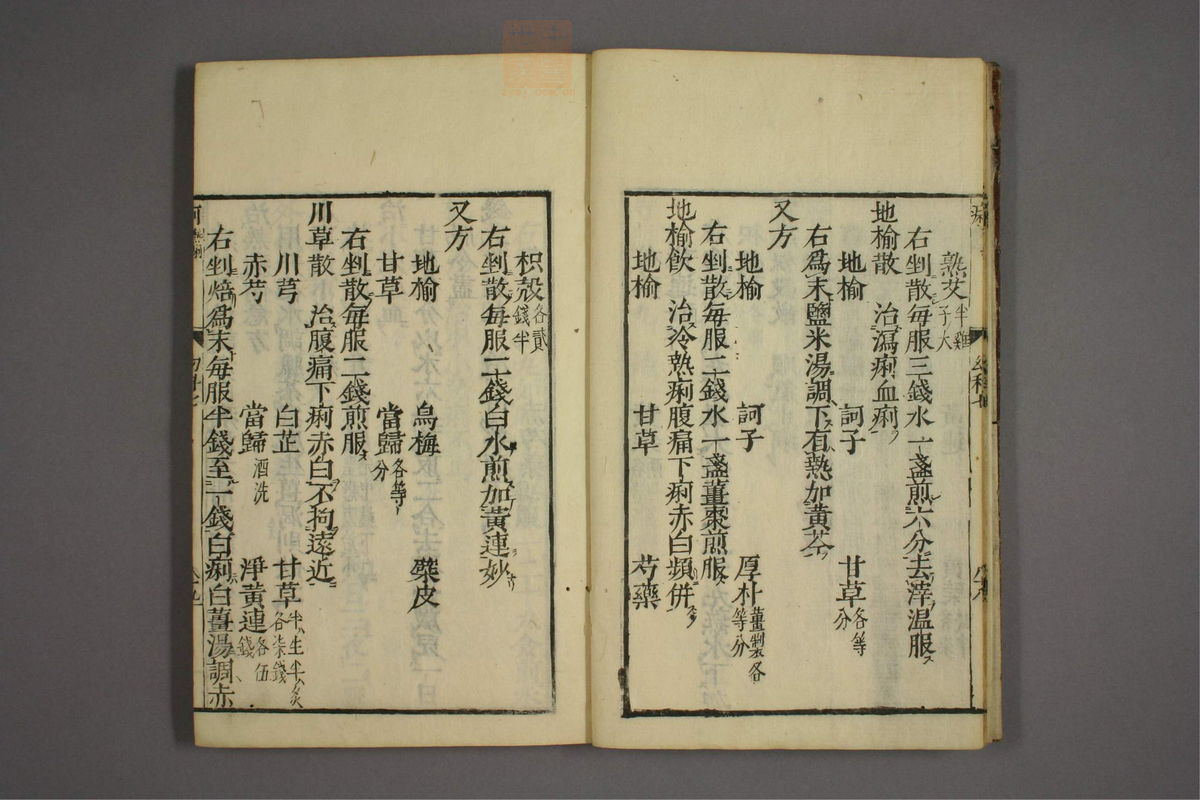 熟艾半雞子大
右剉散每服三錢水一盞煎六分去滓温服
地榆散　治瀉痢血痢
地榆　訶子　甘草各等分
右爲末鹽米湯調下有熱加黃芩
又方
地榆　訶子　厚朴薑製各等分
右剉散每服二錢水一盞薑棗煎服
地榆飲　治冷熱痢腹痛下痢赤白頻併
地榆　甘草　芍藥
枳殼各貳錢半
右剉散每服二錢白水煎加黃連妙
又方
地榆　烏梅　檗皮
甘草　當歸各等分
右剉散每服二錢煎服
川草散　治腹痛下痢赤白不拘遠近
川芎　白芷　甘草半生半炙各柒錢
赤芍　當歸酒洗　淨黃連各伍錢
右剉焙爲末每服半錢至一錢白痢白薑湯調赤